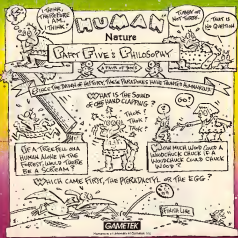 I THINK,
THEREFORE
I AM,
I THINK!
HUMAN
Nature
PART FIVE: PHILOSOPHY
TO BE OR
NOT TO BE.
THAT IS
NO QUESTION
SINCE THE DAWN OF HISTORY, THESE PARADOXES HAVE TAUNTED HUMANKIND
WHAT IS THE SOUND
OF ONE HAND CLAPPING?
THUCK!
THUCK!
THUCK!
IF A TREE FELL ON A
HUMAN ALONE IN THE
FOREST, WOULD THERE
BE A SCREAM?
HOW MUCH WOOD COULD A
WOODCHUCK CHUCK IF A
WOODCHUCK COULD CHUCK
WOOD?
WHICH CAME FIRST, THE PTERODACTYL OR THE EGG?
FINISH LINE
GAMETEK